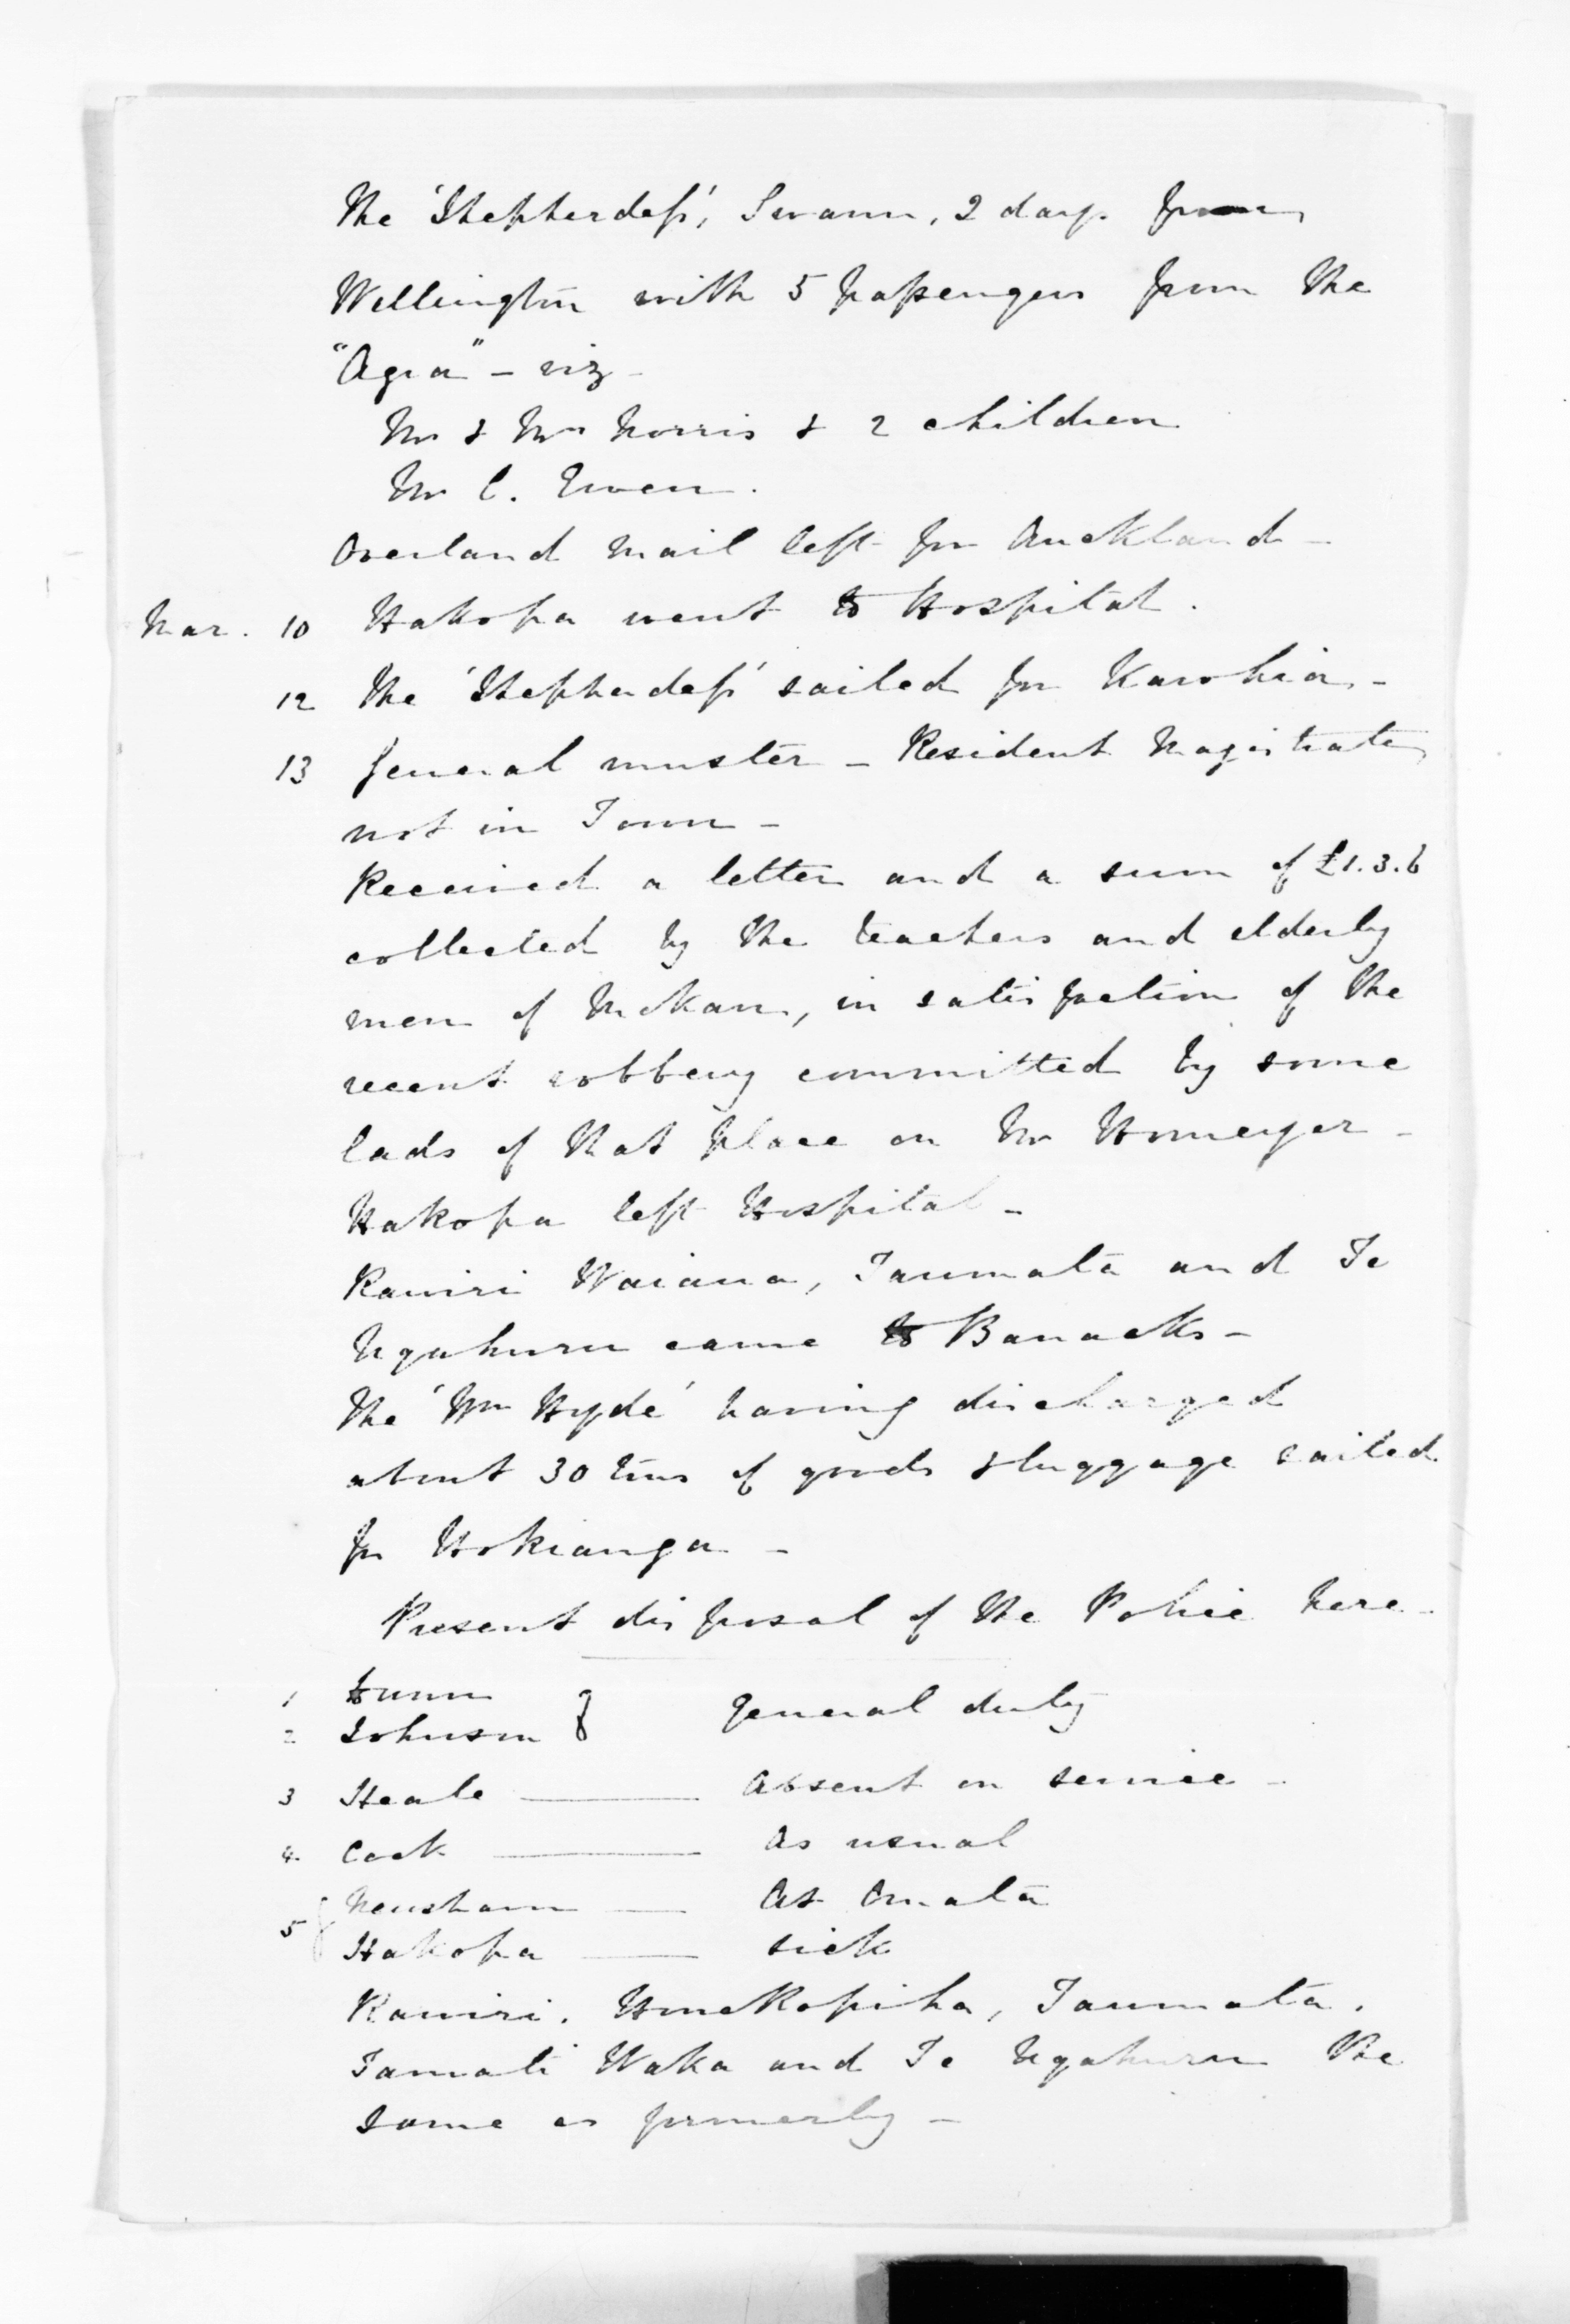 The 'Shepherdess', Swann, 2 days from
Wellington with 5 passengers from the
"Agra" - viz -
Mr & Mrs Norris & 2 children
Mr C. Ewen.
Overland mail left for Auckland -
Mar. 10 Hakopa went to Hospital.
12 The 'Shepherdess' sailed for Kawhia -
13 General muster - Resident Magistrate
not in Town -
Received a letter and a sum of £1.3.6
collected by the teachers and elderly
men of Mokau, in satisfaction of the
recent robbery committed by some
lads of that place on Mr Homeyer -
Hakopa left Hospital -
Rawiri Waiaua, Taumata and Te
Ngahuru came to Barracks -
The 'Wm Hyde' having discharged
about 30 tons of goods & luggage sailed
for Hokianga -
Present disposal of the Police here -
1 Dunn
2 Johnson } general duty
3 Heale — Absent on service -
4. Cook — As usual
5 { Newsham — At Omata
Hakopa — sick
Rawiri. Honekopiha, Taumata.
Tamati Waka and Te Ngahuru the
same as formerly -